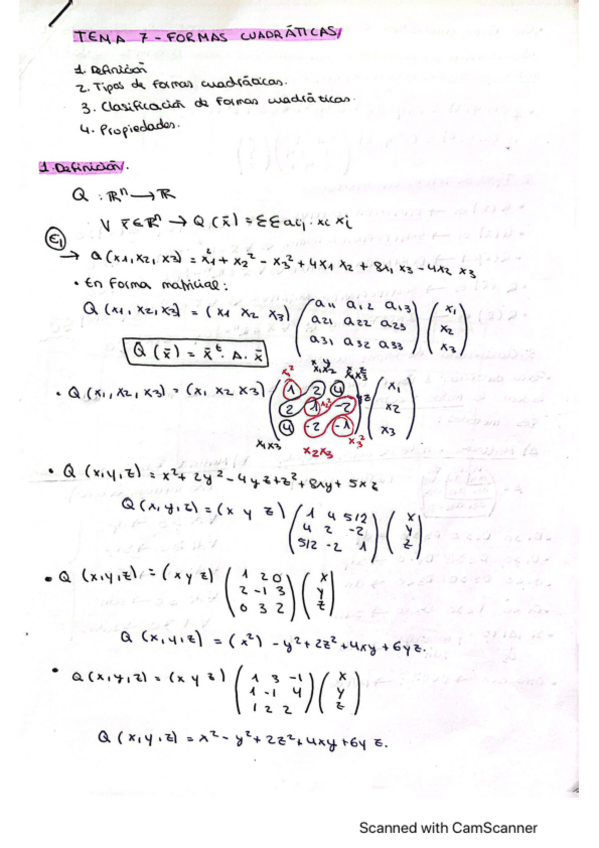 TEMA 7 - FORMAS CUADRÁTICAS
1. Definición
2. Tipos de formas cuadráticas.
3. Clasificación de formas cuadráticas.
4. Propiedades.
1. Definición.
Q : ℝⁿ → ℝ
∀ x̄ ∈ ℝⁿ → Q(x̄) = ΣΣ aij · xi xj
Ej
→ Q(x1, x2, x3) = x1² + x2² - x3² + 4x1 x2 + 8x1 x3 - 4x2 x3
• En forma matricial:
Q(x1, x2, x3) = (x1 x2 x3) (a11 a12 a13) (x1)
a21 a22 a23 x2
a31 a32 a33 x3
Q(x̄) = x̄ᵗ · A · x̄
x1² x y x1x2 x z x1x3
• Q(x1, x2, x3) = (x1 x2 x3) (1 2 4) (x1)
2 1 -2 x2
4 -2 -1 x3
x2² yz
x1x3 x2x3 x3²
• Q(x, y, z) = x² + 2y² - 4yz + z² + 8xy + 5xz
Q(x, y, z) = (x y z) (1 4 5/2) (x)
4 2 -2 y
5/2 -2 1 z
• Q(x, y, z) = (x y z) (1 2 0) (x)
2 -1 3 y
0 3 2 z
Q(x, y, z) = (x²) - y² + 2z² + 4xy + 6yz.
• Q(x, y, z) = (x y z) (1 3 -1) (x)
1 -1 4 y
1 2 2 z
Q(x, y, z) = x² - y² + 2z² + 4xy + 6yz.
Scanned with CamScanner